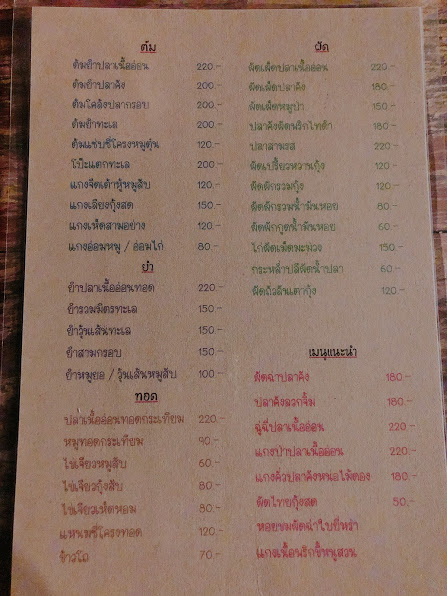 ต้ม
ต้มยำปลาเนื้ออ่อน 220.-
ต้มยำปลาคัง 200.-
ต้มโคล้งปลากรอบ 200.-
ต้มยำทะเล 200.-
ต้มแซ่บซี่โครงหมูตุ๋น 120.-
โป๊ะแตกทะเล 200.-
แกงจืดเต้าหู้หมูสับ 120.-
แกงเลียงกุ้งสด 150.-
แกงเห็ดสามอย่าง 120.-
แกงอ่อมหมู / อ่อมไก่ 80.-
ยำ
ยำปลาเนื้ออ่อนทอด 220.-
ยำรวมมิตรทะเล 150.-
ยำวุ้นเส้นทะเล 150.-
ยำสามกรอบ 150.-
ยำหมูยอ / วุ้นเส้นหมูสับ 100.-
ทอด
ปลาเนื้ออ่อนทอดกระเทียม 220.-
หมูทอดกระเทียม 90.-
ไข่เจียวหมูสับ 60.-
ไข่เจียวกุ้งสับ 80.-
ไข่เจียวเห็ดหอม 80.-
แหนมซี่โครงทอด 120.-
ข้าวโถ 70.-
ผัด
ผัดเผ็ดปลาเนื้ออ่อน 220.-
ผัดเผ็ดปลาคัง 180.-
ผัดเผ็ดหมูป่า 150.-
ปลาคังผัดพริกไทดำ 180.-
ปลาสามรส 220.-
ผัดเปรี้ยวหวานกุ้ง 120.-
ผัดผักรวมกุ้ง 120.-
ผัดผักรวมน้ำมันหอย 80.-
ผัดผักกูดน้ำมันหอย 60.-
ไก่ผัดเม็ดมะม่วง 150.-
กระหล่ำปลีผัดน้ำปลา 60.-
ผัดถั่วลันเตากุ้ง 120.-
เมนูแนะนำ
ผัดฉ่าปลาคัง 180.-
ปลาคังลวกจิ้ม 180.-
ฉู่ฉี่ปลาเนื้ออ่อน 220.-
แกงป่าปลาเนื้ออ่อน 220.-
แกงคั่วปลาคังหน่อไม้ดอง 180.-
ผัดไทยกุ้งสด 50.-
หอยขมผัดฉ่าใบยี่หร่า
แกงเนื้อพริกขี้หนูสวน